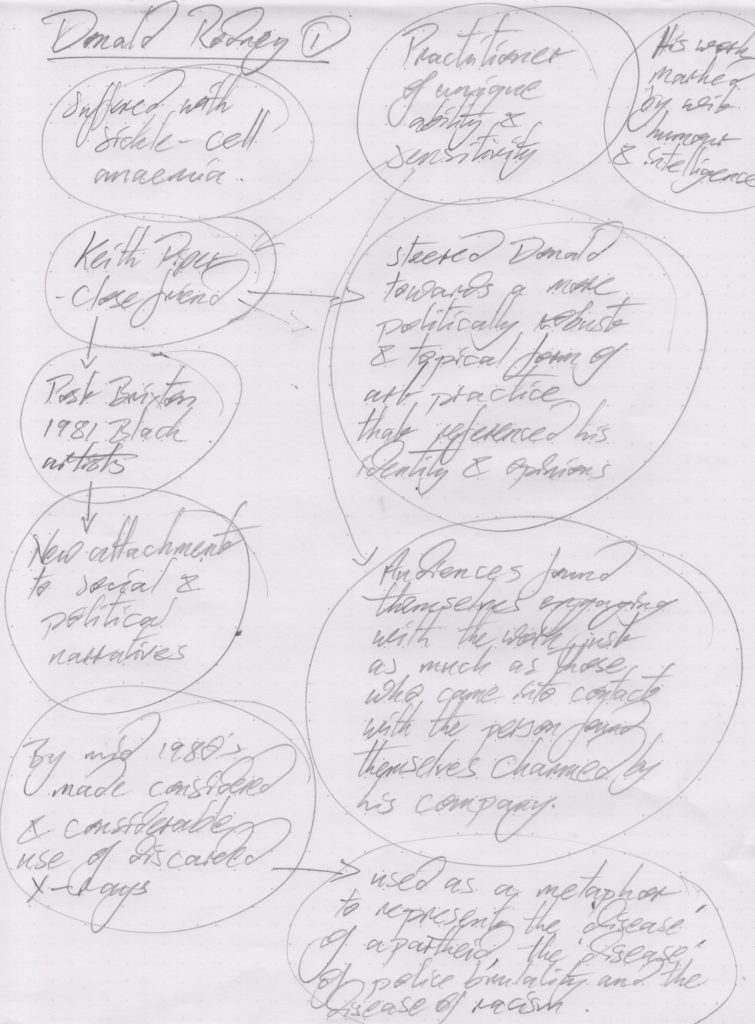 Donald Rodney 1
Suffered with
sickle-cell
anaemia.
Practitioner
of unique
ability &
sensitivity
His work
marked
by wit
humour
& intelligence
Keith Piper
- close friend
steered Donald
towards a more
politically robust
& topical form of
art practice
that referenced his
identity & opinions
Post Brixton
1981 Black
artists
New attachment
to social &
political
narratives
Audiences found
themselves engaging
with the work just
as much as those
who came into contact
with the person found
themselves charmed by
his company.
By mid 1980's
made considered
& considerable
use of discarded
X-rays
used as a metaphor
to represent the 'disease'
of apartheid, the 'disease'
of police brutality and the
disease of racism.